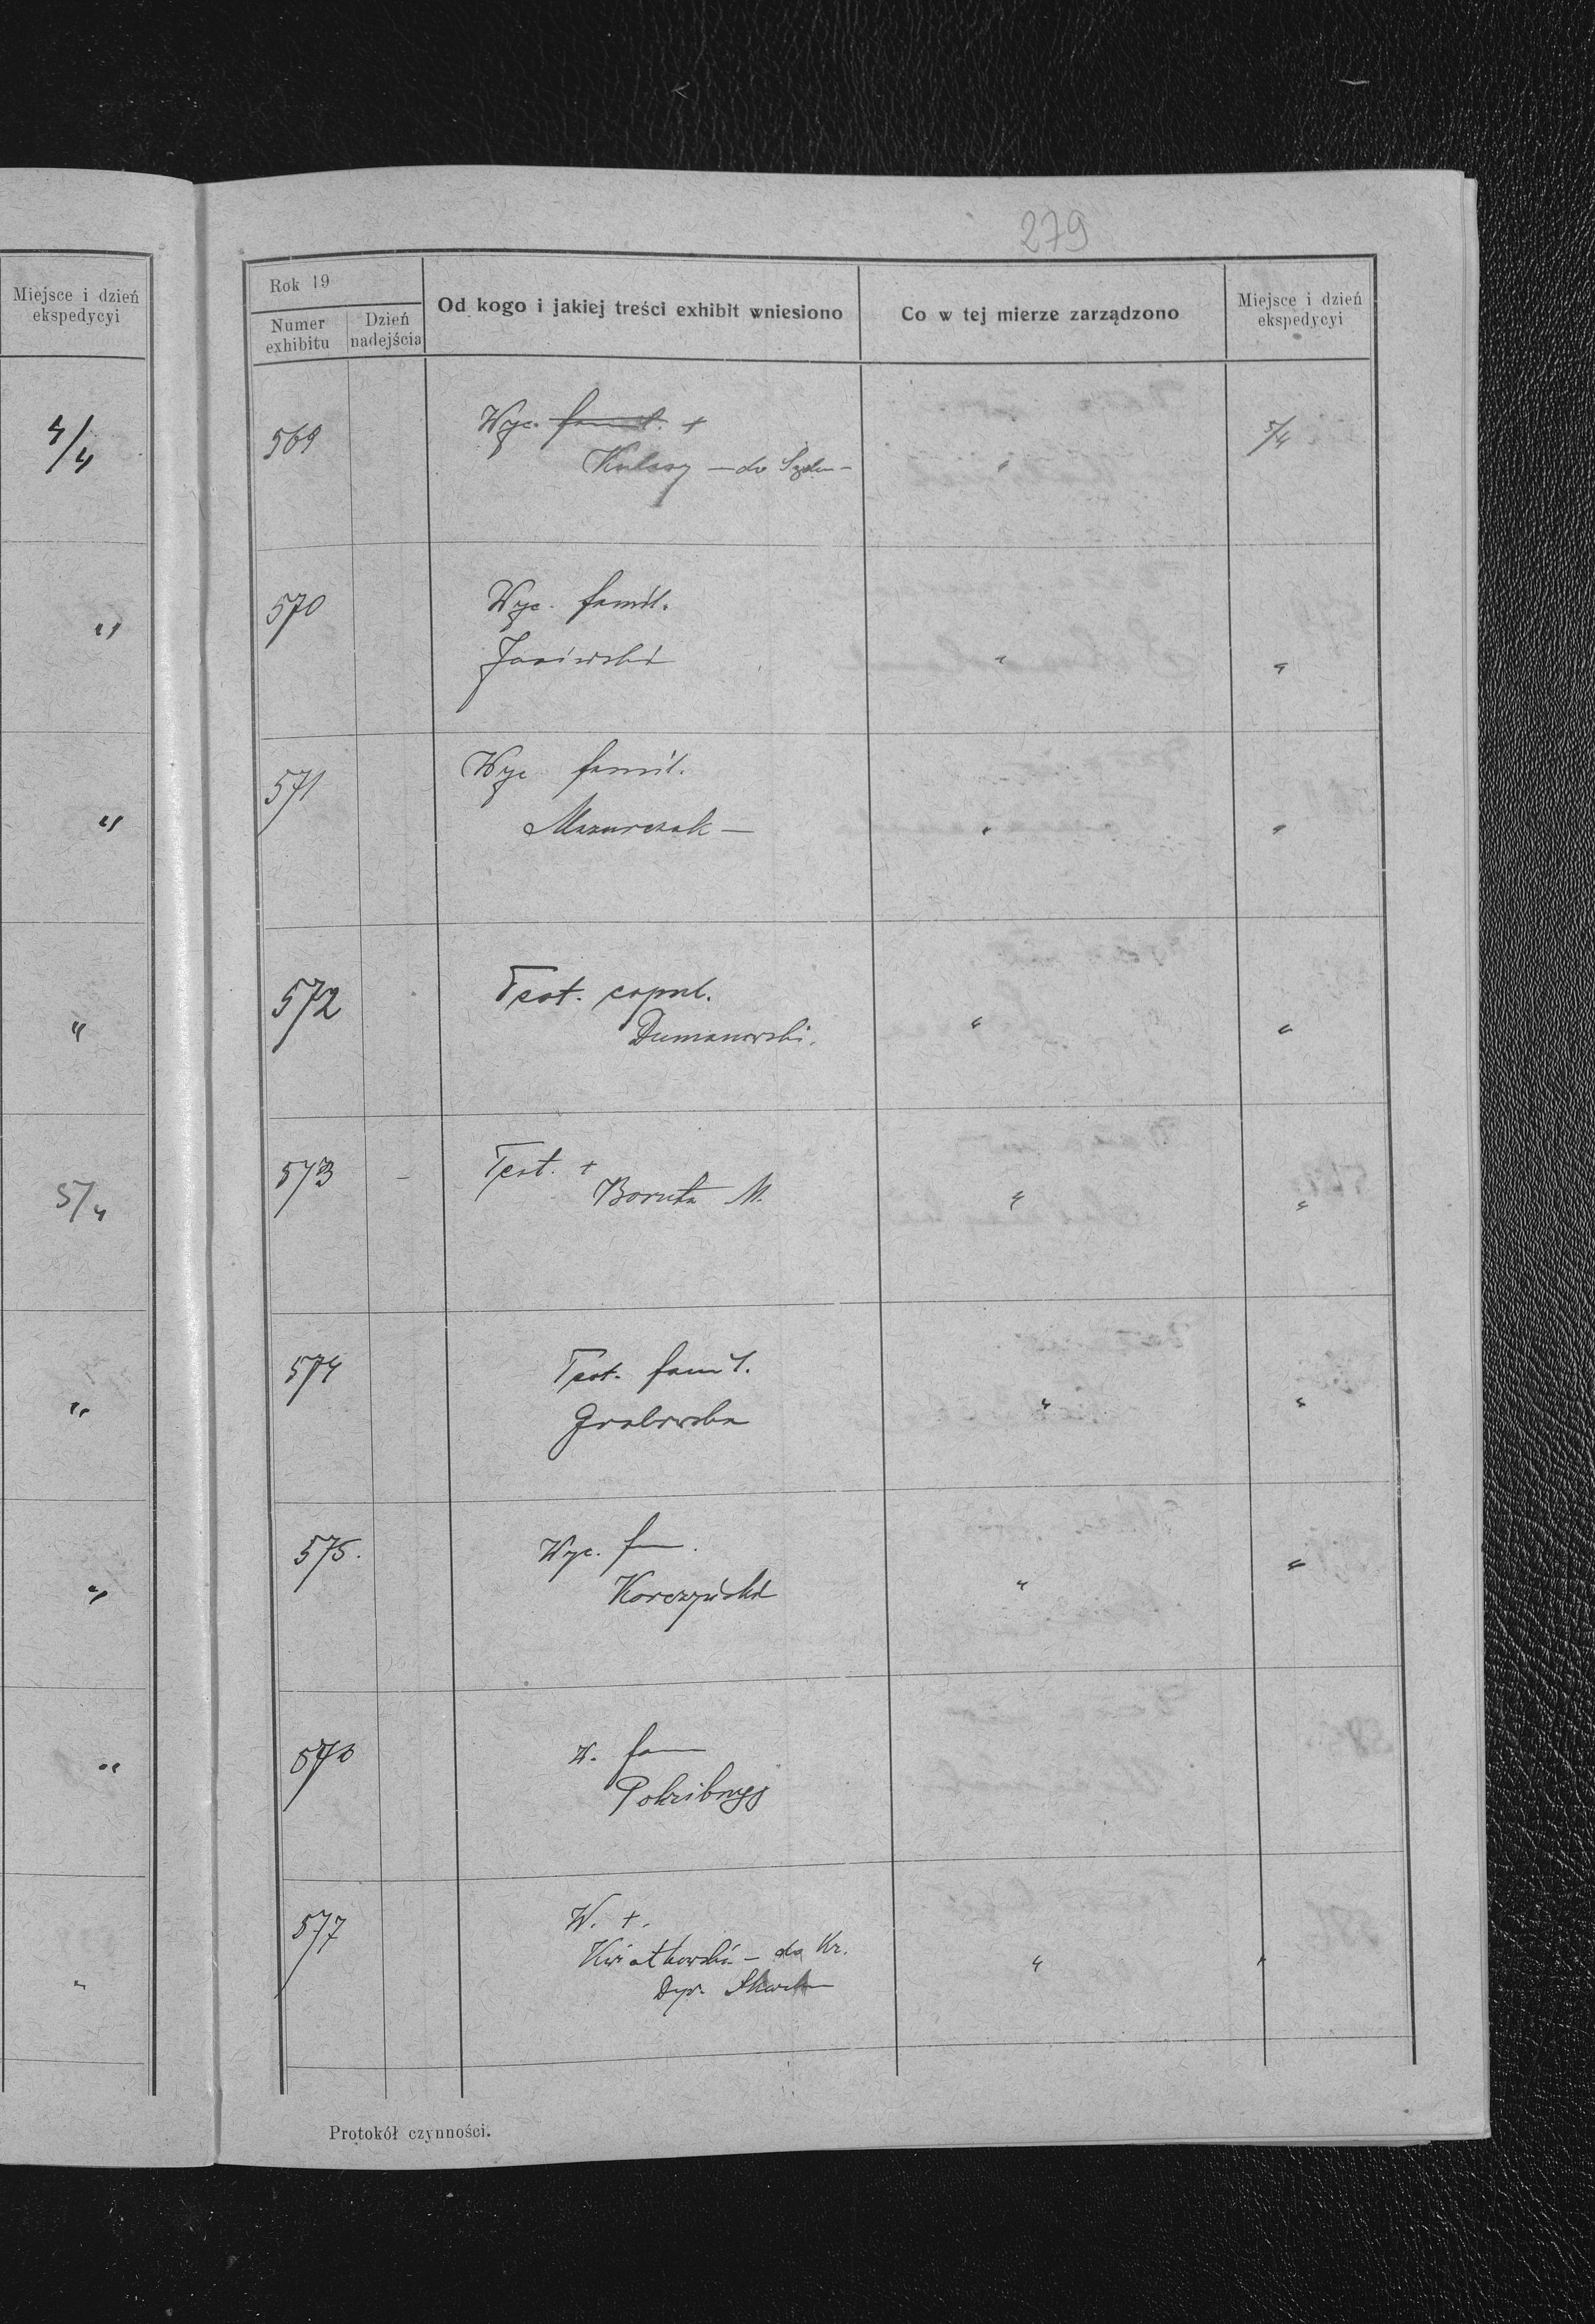 279
Miejsce i dzień
ekspedycyi
4/4
"
"
"
5/4
"
"
"
"
Rok 19
Numer
exhibitu
Dzień
nadejścia
Od kogo i jakiej treści exhibit wniesiono
Co w tej mierze zarządzono
Miejsce i dzień
ekspedycyi
569 Wyc. famil. + 5/4
— do "
570 Wyc. famil.
" "
571 Wyc famil.
Mazurczak — " "
572 Test. copul.
Dumanowski. " "
573 - Test. +
Boruta M. " "
574 Test. famil.
Grabowska " "
575. Wyc. fam. "
Korczyński "
576 W. fam
577 W. +.
Kwiatkowski — do Kr. " "
Dyr.
Protokół czynności.